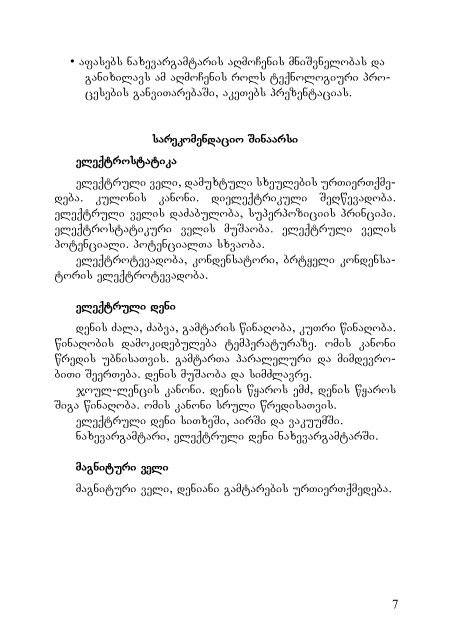 • აფასებს ნახევარგამტარის აღმოჩენის მნიშვნელობას და
განიხილავს ამ აღმოჩენის როლს ტექნოლოგიური პრო-
ცესების განვითარებაში, აკეთებს პრეზენტაციას.
სარეკომენდაციო შინაარსი
ელექტროსტატიკა
ელექტრული ველი, დამუხტული სხეულების ურთიერთქმე-
დება. კულონის კანონი. დიელექტრიკული შეღწევადობა.
ელექტრული ველის დაძაბულობა, სუპერპოზიციის პრინციპი.
ელექტროსტატიკური ველის მუშაობა. ელექტრული ველის
პოტენციალი. პოტენციალთა სხვაობა.
ელექტროტევადობა, კონდენსატორი, ბრტყელი კონდენსა-
ტორის ელექტროტევადობა.
ელექტრული დენი
დენის ძალა, ძაბვა, გამტარის წინაღობა, კუთრი წინაღობა.
წინაღობის დამოკიდებულება ტემპერატურაზე. ომის კანონი
წრედის უბნისათვის. გამტართა პარალელური და მიმდევრო-
ბითი შეერთება. დენის მუშაობა და სიმძლავრე.
ჯოულ-ლენცის კანონი. დენის წყაროს ემძ, დენის წყაროს
შიგა წინაღობა. ომის კანონი სრული წრედისათვის.
ელექტრული დენი სითხეში, აირში და ვაკუუმში.
ნახევარგამტარი, ელექტრული დენი ნახევარგამტარში.
მაგნიტური ველი
მაგნიტური ველი, დენიანი გამტარების ურთიერთქმედება.
7